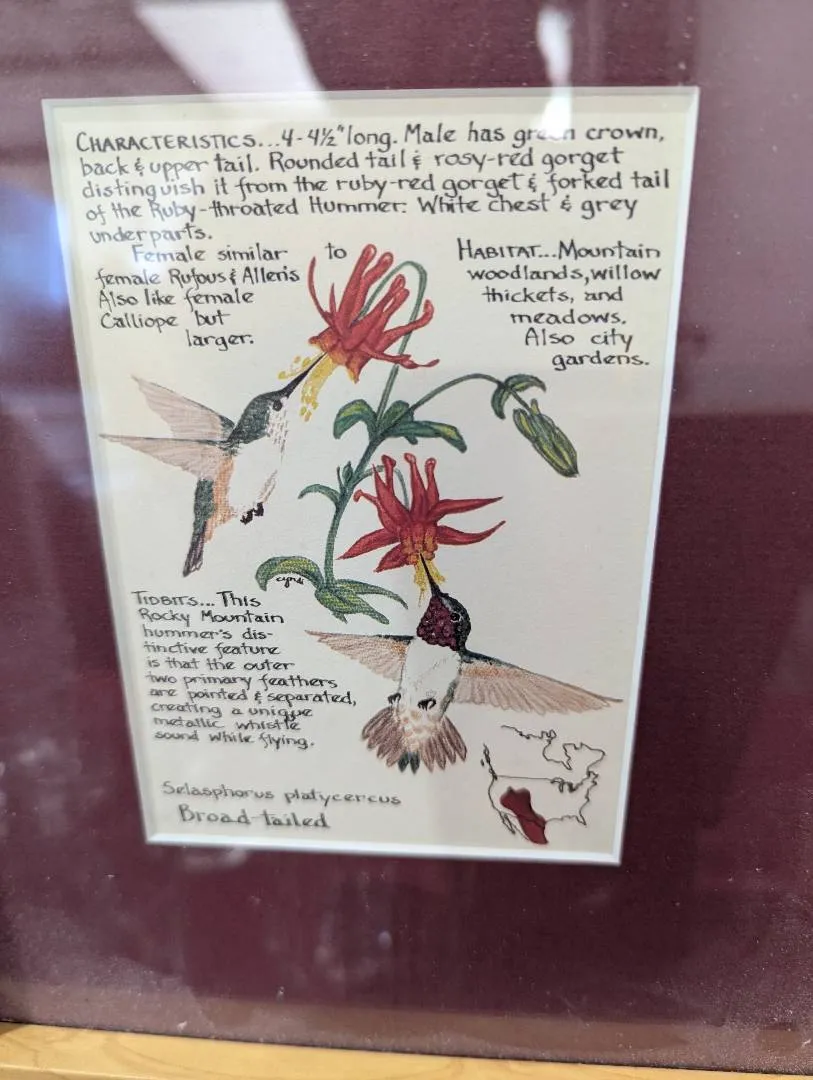 CHARACTERISTICS...4-4½" long. Male has green crown,
back & upper tail. Rounded tail & rosy-red gorget
distinguish it from the ruby-red gorget & forked tail
of the Ruby-throated Hummer. White chest & grey
underparts.
Female similar to
female Rufous & Allen's
Also like female
Calliope but
larger.
HABITAT...Mountain
woodlands, willow
thickets, and
meadows.
Also city
gardens.
cyndi
TIDBITS...This
Rocky Mountain
hummer's dis-
tinctive feature
is that the outer
two primary feathers
are pointed & separated,
creating a unique
metallic whistle
sound while flying.
Selasphorus platycercus
Broad-tailed